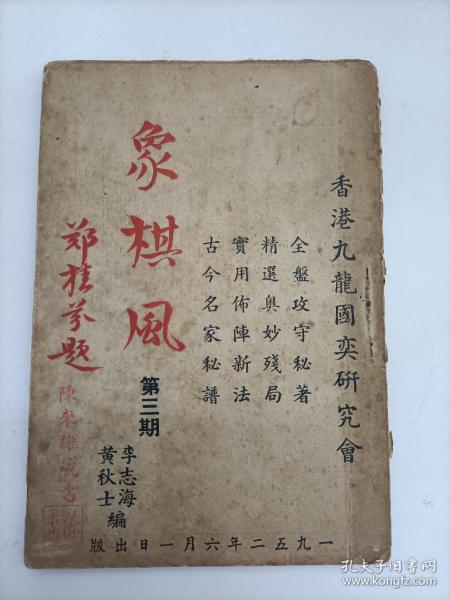 香港九龍國奕研究會
全盤攻守秘著
精選奧妙殘局
實用佈陣新法
古今名家秘譜
象棋風
第三期
李志海
黃秋士編
鄭桂芬題
一九五二年六月一日出版
孔夫子旧书网